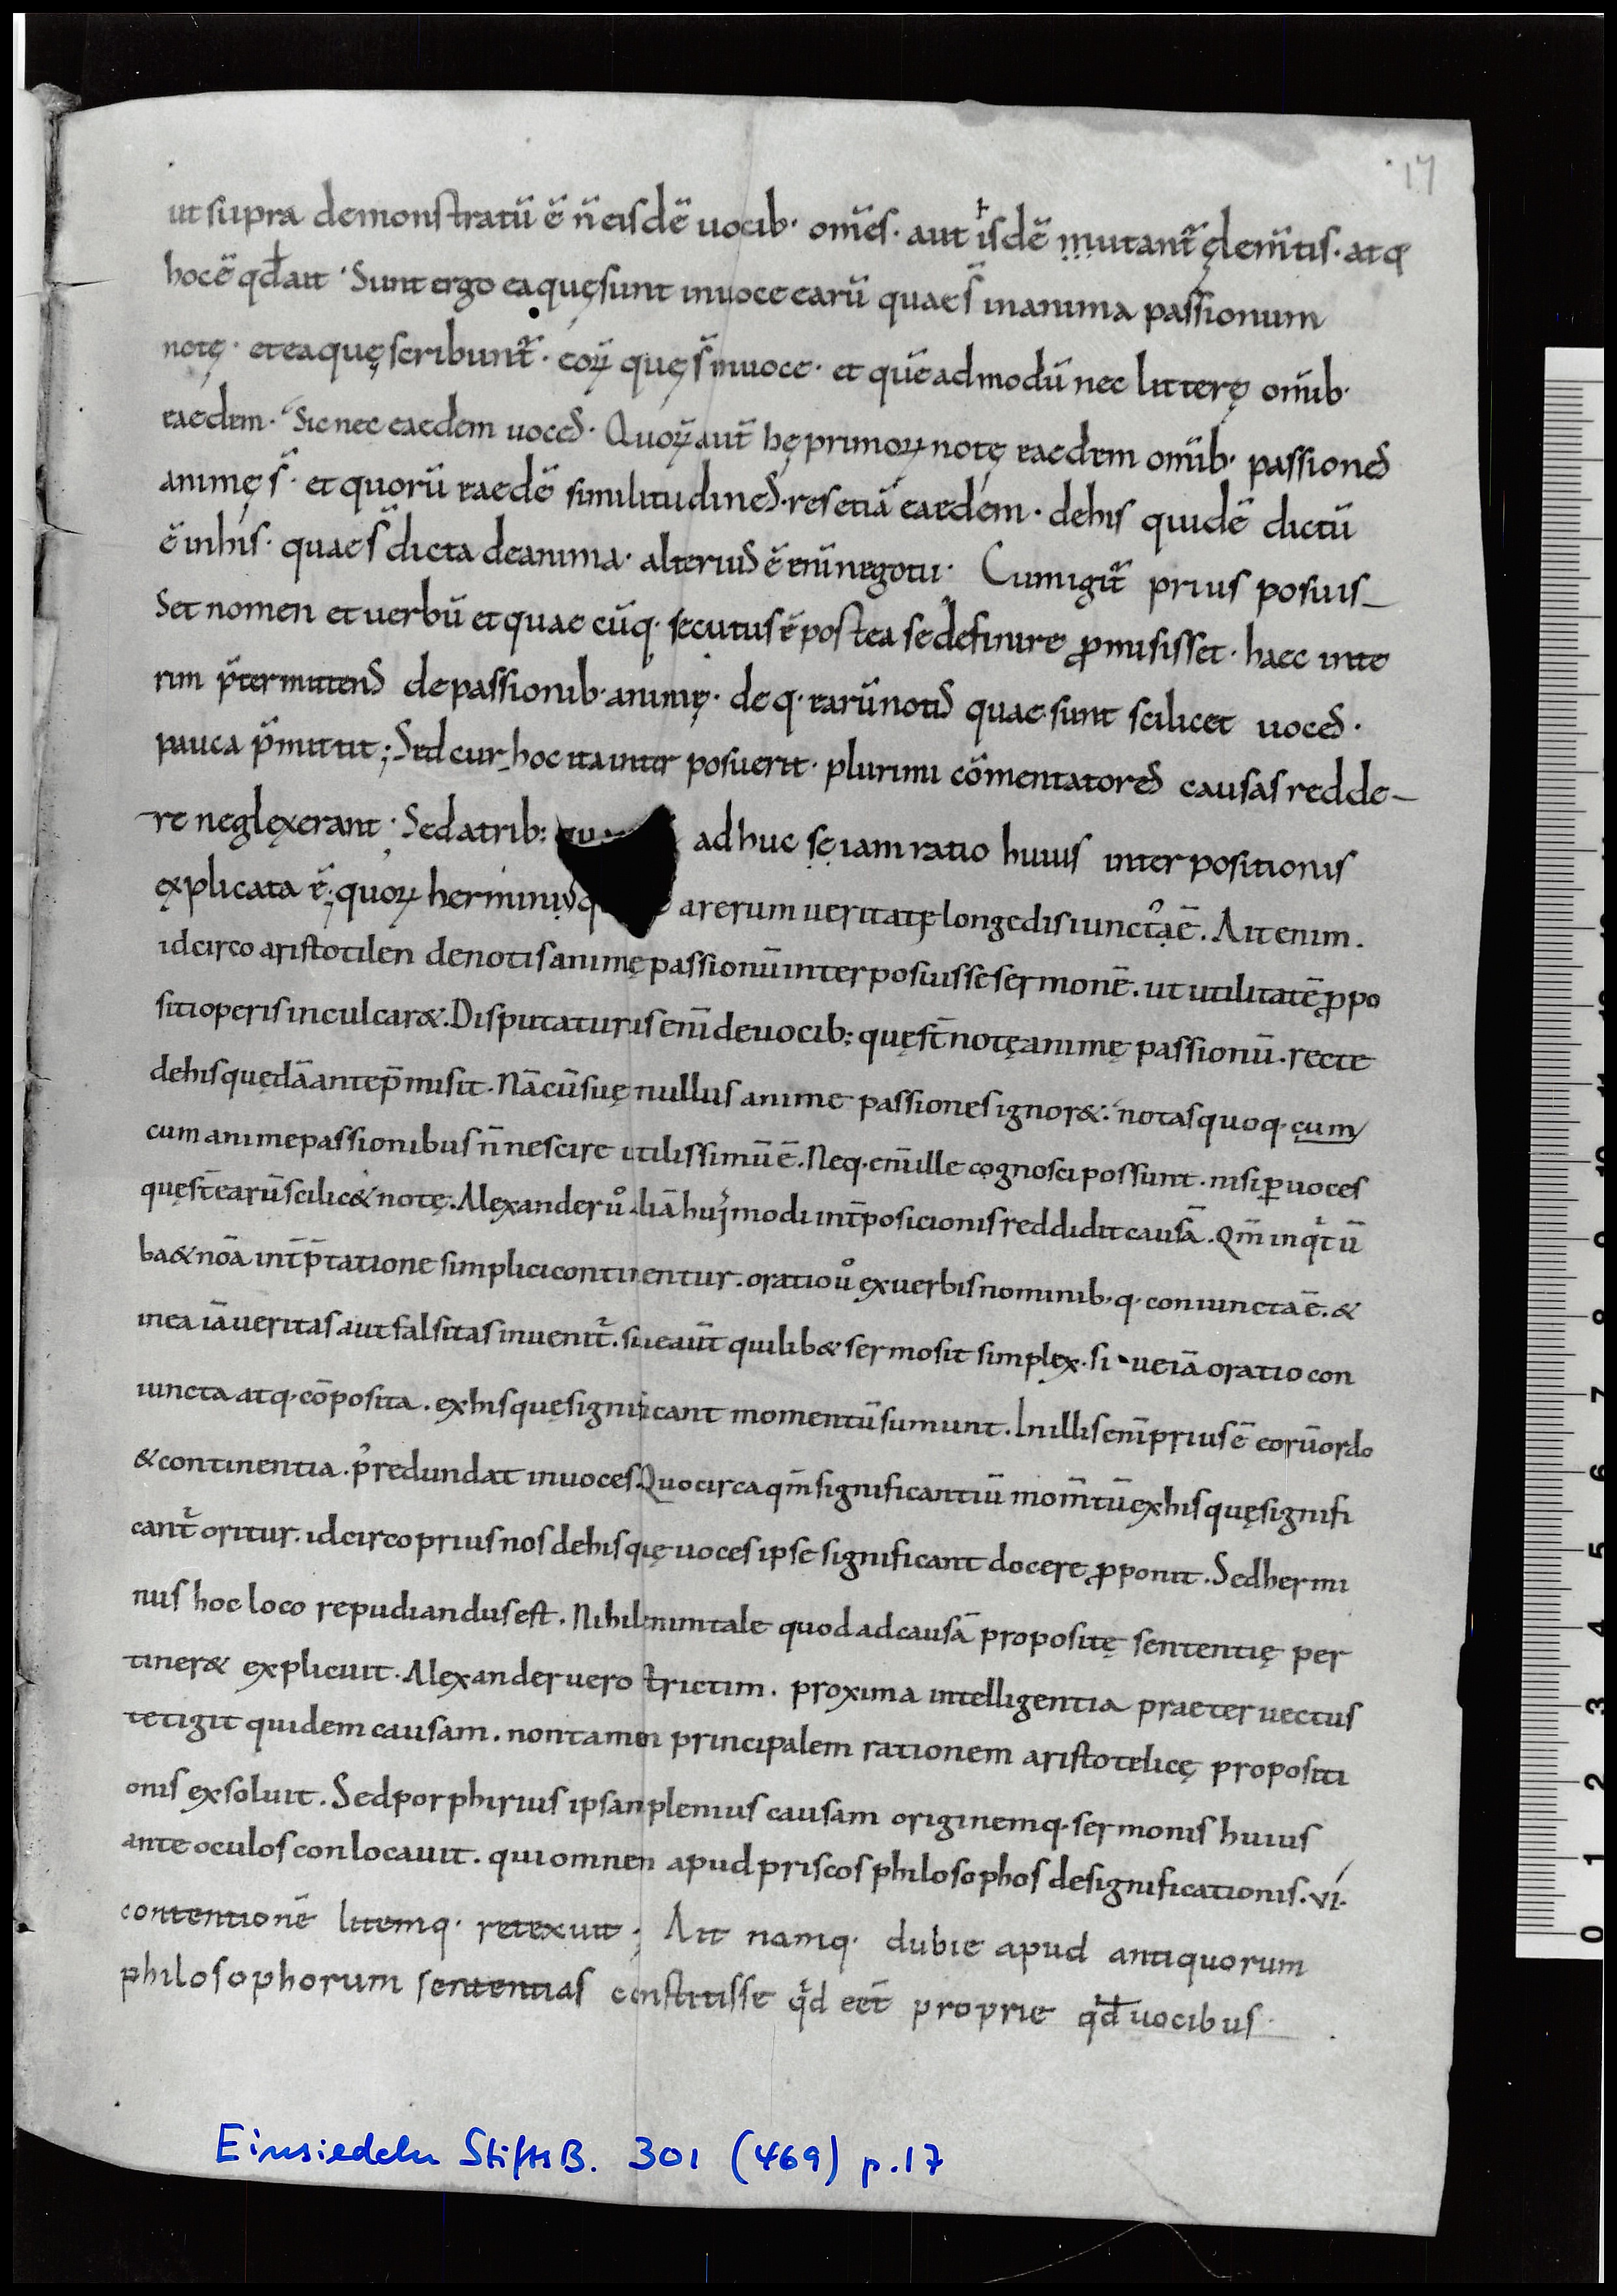 17
ut supra demonstratū ē n̄ eisdē uocib· om̄es· aut isdē mutant̄ ęlem̄tis· atq·
hoc ē qđ ait· Sunt ergo ea quę sunt in uoce earū quae s̄ in anima passionum
notę· et ea quę scribunt̄· eoꝝ quę s̄ in uoce· et quēadmodū nec litterę om̄ib·
eaedem· Sic nec eaedem uoces· Quoꝝ aut̄ hę primoꝝ notę eaedem om̄ib· passiones
animę s̄· et quorū eaedē similitudines· res etiā eaedem· de his quidē dictū
ē in his· quae s̄ dicta de anima· alterius ē eni̅ negotii· Cum igit̄ prius posuis_
Set nomen et uerbū et quaecūq· secutus ē postea se definire ꝓmisisset· haec inte
rim p̄termittens de passionib· animę· deq· earū notis quae sunt scilicet uoces·
pauca p̄mittit; Sed cur hoc ita inter posuerit· plurimi cōmentatores causas redde–
re neglęxerant· Sed a trib: adhuc sę iam ratio huius inter positionis
ęxplicata ē; quoꝝ herminius a rerum ueritate longe disiuncta ē. Ait enim.
idcirco aristotilen de notis animę passionū inter posuisse sermonē. ut utilitatē ꝓpo
siti operis inculcar&. Disputaturis eni̅ de uocib: quę st̄ notę animę passionū. recte
de his quędā ante p̄misit. Nā cū suę nullus anime passiones ignor&: notas quoq· cum
cum anime passionibus n̄ nescire utilissimū ē. Neq· eni̅ ille cognosci possunt. nisi ꝑ uoces
quę st̄ earū scilic& notę. Alexander ů aliā huꝰmodi int̄posicionis reddidit causā. Qm̄ inqͥt ū
ba & noā int̄p̄tatione simplici continentur. oratio ů ex uerbis nominib· q· coniuncta ē. &
in ea iā ueritas aut falsitas inuenit̄. siue aut̄ quilib& sermo sit simplex. siue iā oratio con
iuncta atq· cōposita. ex his quę significant momentū sumunt. In illis eni̅ prius ē eorū ordo
& continentia. p̓ redundat in uoces. Quocirca qm̄ significantiū mom̄tū ex his quę signifi
cant̄ oritur. idcirco prius nos de his quę uoces ipse significant docere ꝓponit. Sed hermi
nus hoc loco repudiandus est. Nihil enim tale quod ad causā propositę sententię per
tiner& explicuit. Alexander uero strictim. proxima intelligentia praeter uectus
tetigit quidem causam. non tamen principalem rationem aristotelicę propositi
onis exsoluit. Sed porphirius ipsam plenius causam originemq· sermonis huius
ante oculos conlocauit. qui omnem apud priscos philosophos de significationis. ui.
contentionē litemq· retexuit; Ait namq· dubie apud antiquorum
philosophorum sententias constitisse qͥd eēt proprie qͥđ uocibus·
Einsiedeln StiftsB. 301 (469) p. 17
0 1 2 3 4 5 6 7 8 9 10 11